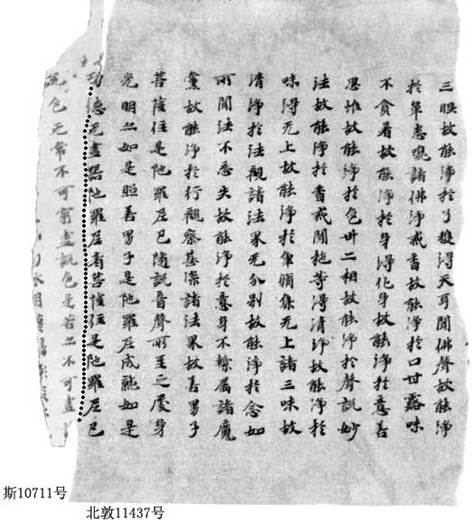 三昧故能淨於耳獲得天耳聞佛聲故能淨
於鼻悉嗅諸佛淨戒香故能淨於口甘露味
不貪着故能淨於身得化身故能淨於意善
思惟故能淨於色卅二相故能淨於聲說妙
法故能淨於香戒聞施等得清淨故能淨於
味得无上故能淨於觸集无上諸三昧故
清淨於法觀諸法界无分別故能淨於念如
所聞法不忘失故能淨於意身不繫屬諸魔
故能淨於行觀察甚深諸法界故善男子
菩薩住是陀羅尼已隨說音聲所至之處身
光明亦如是照善男子是陀羅尼成就如是
功德无盡陀羅尼者菩薩住是陀羅尼已
說色无常不可窮盡說色是苦亦不可盡
斯10711号
北敦11437号